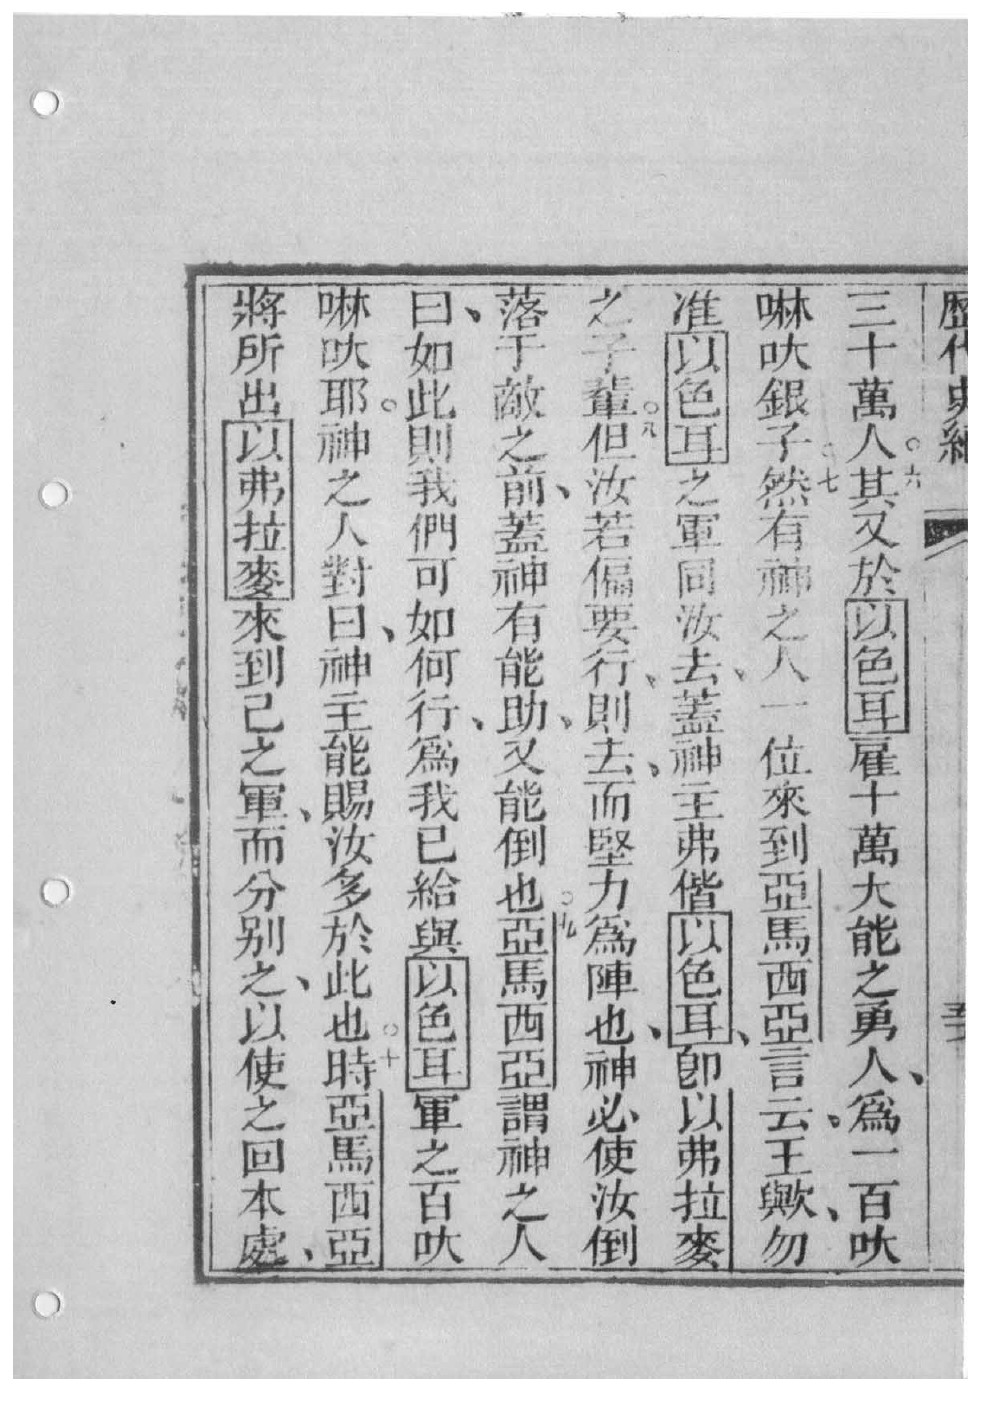 歷代史紀
三十萬人○六其又於以色耳雇十萬大能之勇人、爲一百吠
嚇吠銀子○七然有神之人一位來到亞馬西亞言云、王歟、勿
准以色耳之軍同汝去、蓋神主弗偕以色耳、卽以弗拉麥
之子輩○八但汝若偏要行、則去、而堅力爲陣也、神必使汝倒
落于敵之前、蓋神有能助、又能倒也○九亞馬西亞謂神之人
曰、如此則我們可如何行、爲我已給與以色耳軍之百吠
嚇吠耶。神之人對曰、神主能賜汝多於此也○十時亞馬西亞
將所出以弗拉麥來到己之軍、而分別之、以使之回本處、